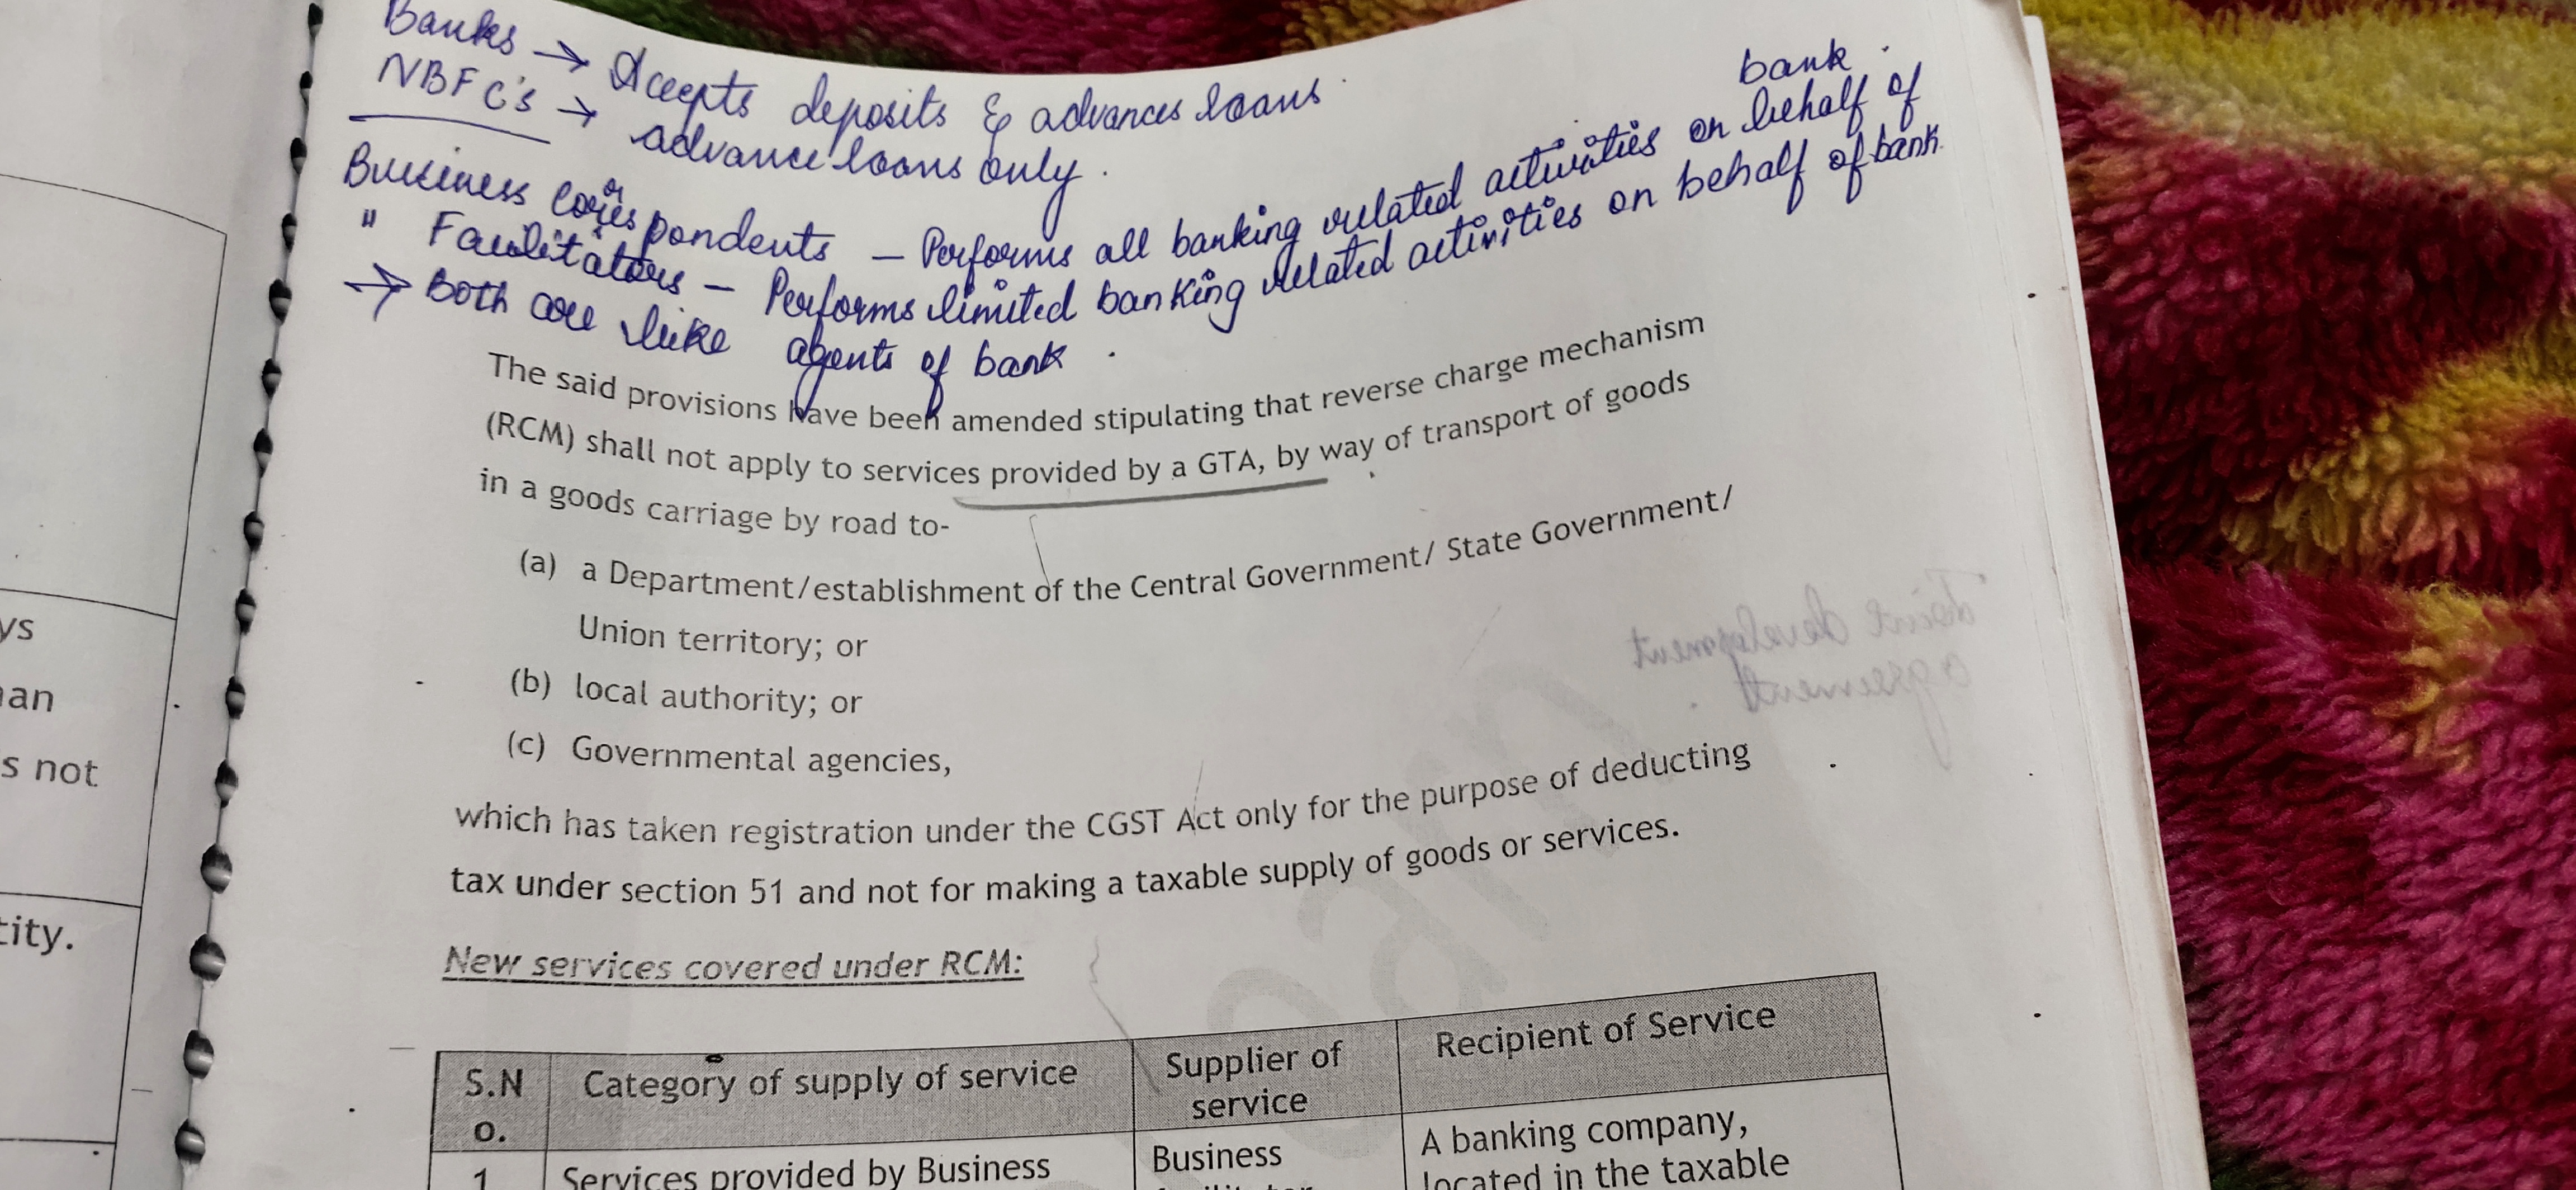 Banks → Accepts deposits & advances loans.
NBFC's → advance loans only.
Business Correspondents – Performs all banking related activities on behalf of bank.
" Facilitators – Performs limited banking related activities on behalf of bank.
→ Both are like agents of bank.
The said provisions have been amended stipulating that reverse charge mechanism
(RCM) shall not apply to services provided by a GTA, by way of transport of goods
in a goods carriage by road to-
(a) a Department/establishment of the Central Government/ State Government/
Union territory; or
(b) local authority; or
(c) Governmental agencies,
which has taken registration under the CGST Act only for the purpose of deducting
tax under section 51 and not for making a taxable supply of goods or services.
New services covered under RCM:
S.N
o.
Category of supply of service
Supplier of
service
Recipient of Service
1
Services provided by Business
Business
A banking company,
located in the taxable
s not
Joint development
agreement